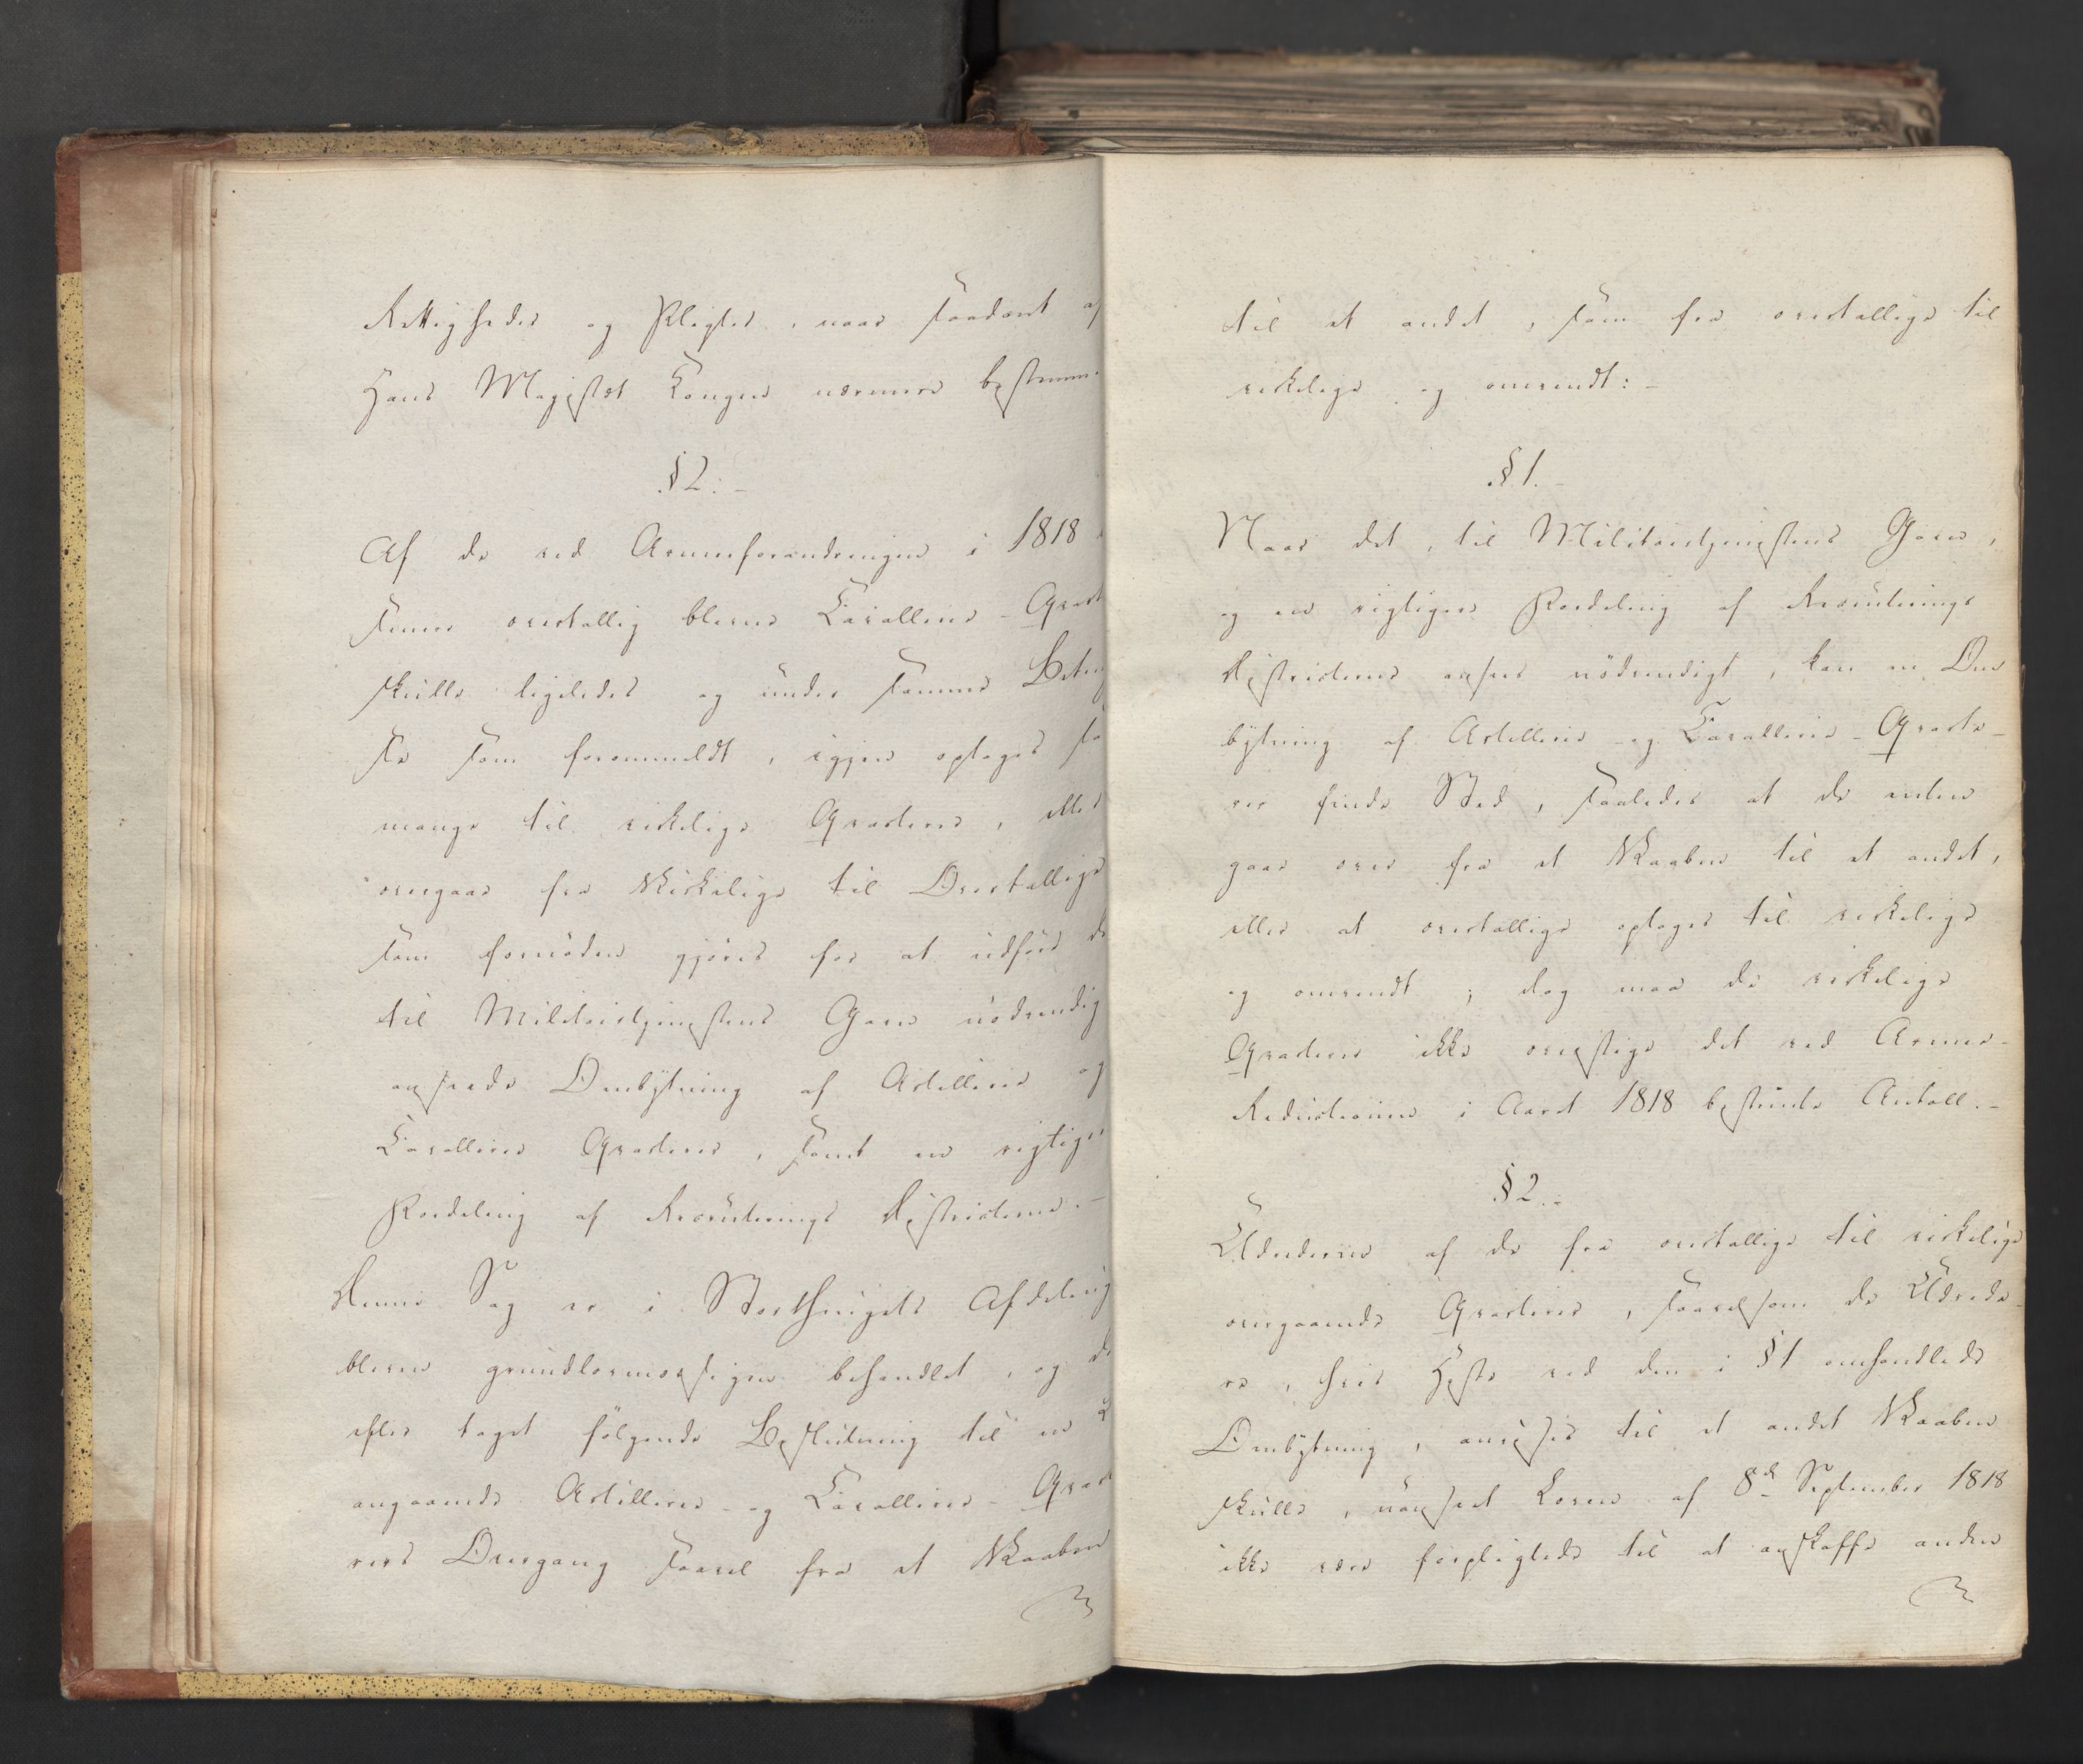 Rettigheder og Pligter, naar saadant af
Hans Majestæt Kongen nærmere bestemm
§ 2. -
Af de ved Armeeforandringen i 1818
siuns overtallig blevne Cavallerie-Qvart
skulle ligeledes og under samme Beting
se som foranmeldt, igjen optages saa
mange til virkelige Qvarterer, eller
overgaae fra Virkelige til Overtallige
som fornöden gjöres for at udföre de
til Militairtjenestens Gavn nödvendig
ansaaede Ombÿtning af Artillerie og
Cavallerie Qvarterer, samt en rigtiger
Fordeling af Recruterings Districterne. -
Denne Sag er i Storthingets Afdeling
bleven grundlovmæssigen behandlet, og der
efter taget fölgende Beslutning til en L
angaaende Artillerie- og Cavallerie- Qvar
rers Overgang saavel fra et Vaaben
til et andet, som fra overtallige til
virkelige og omvendt: -
§ 1. -
Naar det, til Militairtjenestens Gavn,
og en rigtigere Fordeling af Recruterings
Districterne ansees nödvendigt, kan en Om
bÿtning af Artillerie- og Cavallerie- Qvarte-
rer finde Sted, saaledes at de enten
gaae over fra et Vaaben til et andet,
eller at overtallige optages til virkelige
og omvendt; dog maa de virkelige
Qvarterer ikke overstige det ved Armee-
Reductionen i Aaret 1818 bestemte Antall. -
§ 2. -
Udrederne af de fra overtallige til virkelige
overgaaende Qvarterer, saavelsom de Udrede-
re, hvis Heste ved den i § 1 omhandlede
Ombÿtning, anvises til et andet Vaaben
skulle, uanseet Loven af 8de September 1818
ikke være forpligtede til at anskaffe anden